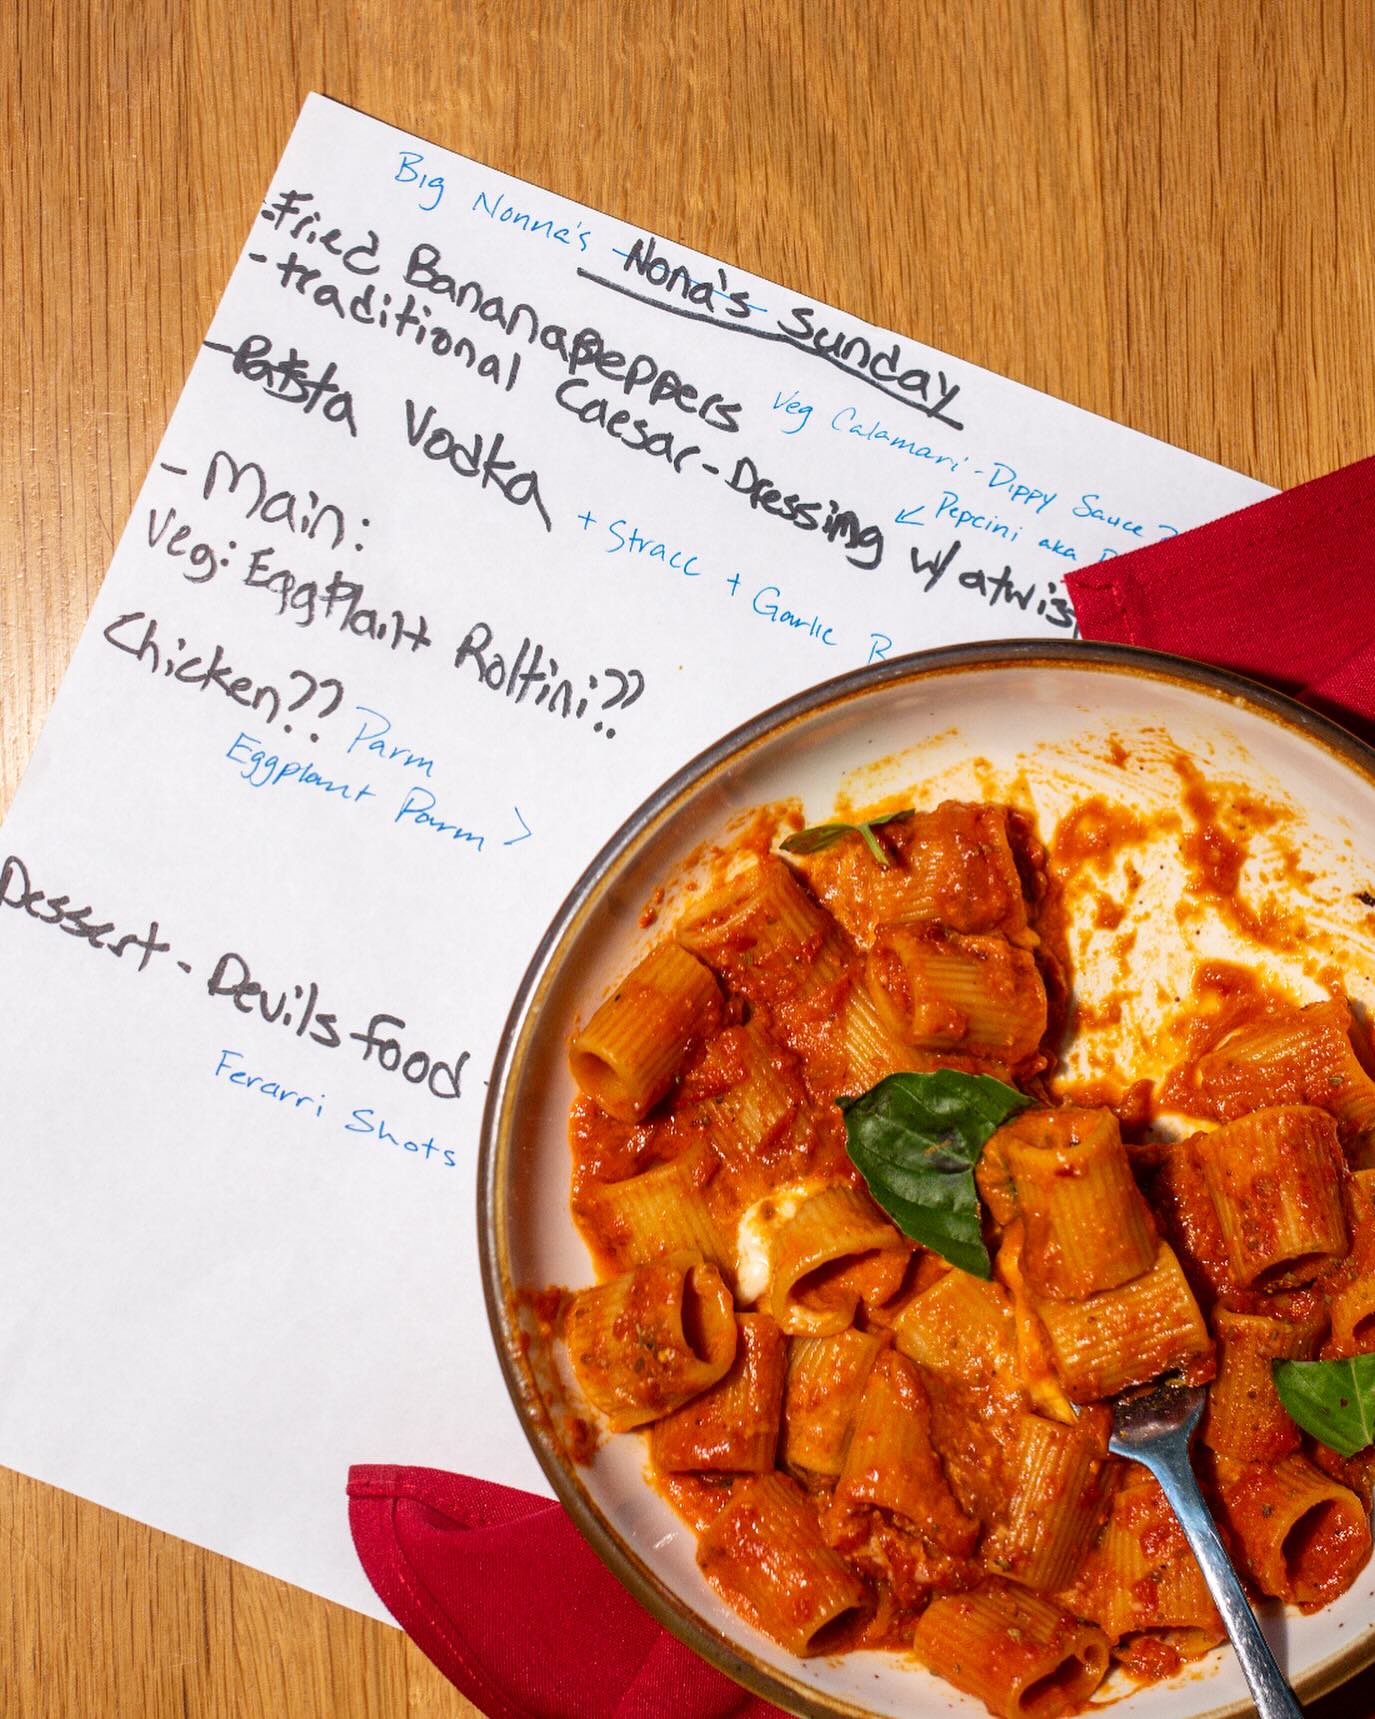 Big Nonna's Nona's Sunday
-Fried Bananapeppers Veg Calamari - Dippy Sauce ?
-traditional Caesar-Dressing w/ atwist
↙ Pepcini aka
-Pasta Vodka + Stracc + Garlic B
-Main:
Veg: EggPlant Roltini??
Chicken?? Parm
Eggplant Parm >
Dessert - Devils food -
Ferarri Shots